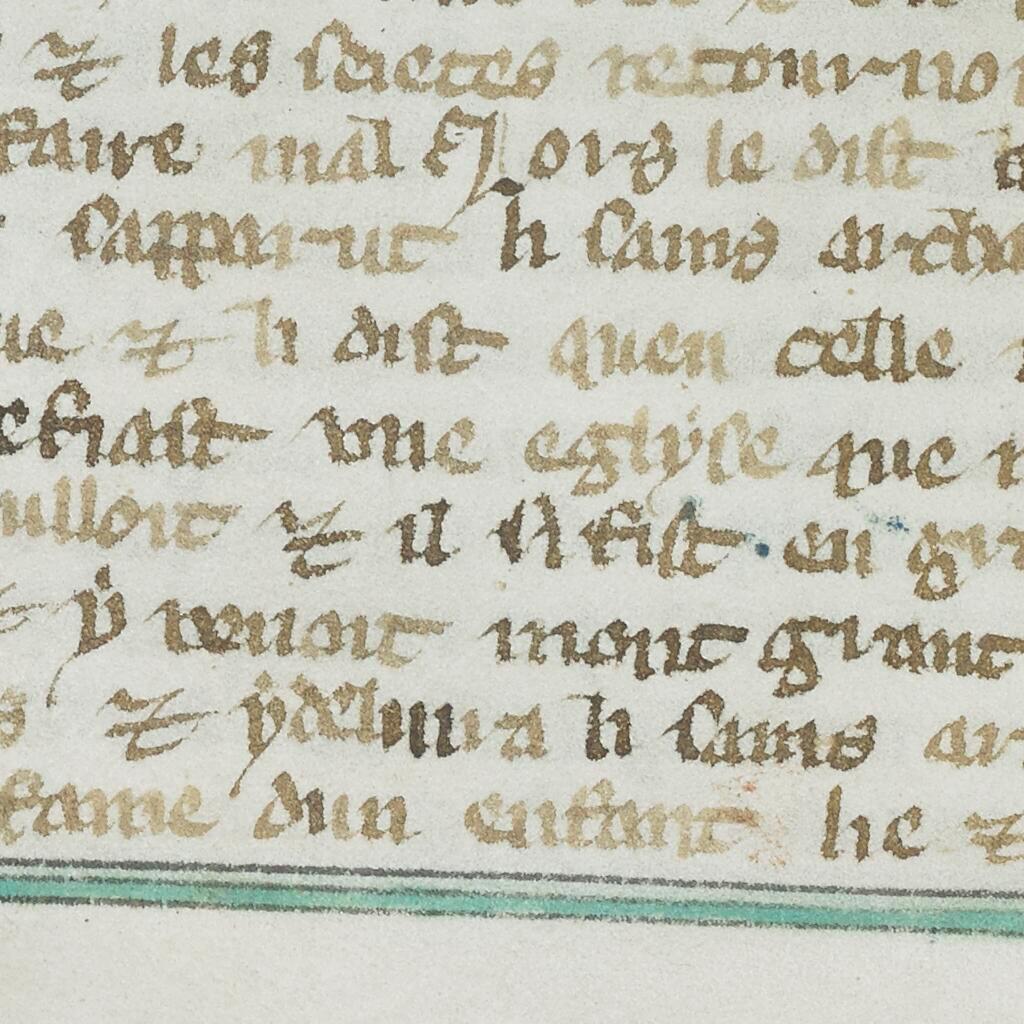 ⁊ les saietes retourno
faire mal ⁊ lors le dist
sapparut li sains archa
ue ⁊ li dist quen celle
efiast vne eglyse que
uilloit ⁊ il si fist en gr
ÿ venoit mout grant
⁊ ÿ deliura li sains ar
fame dun enfant he ⁊